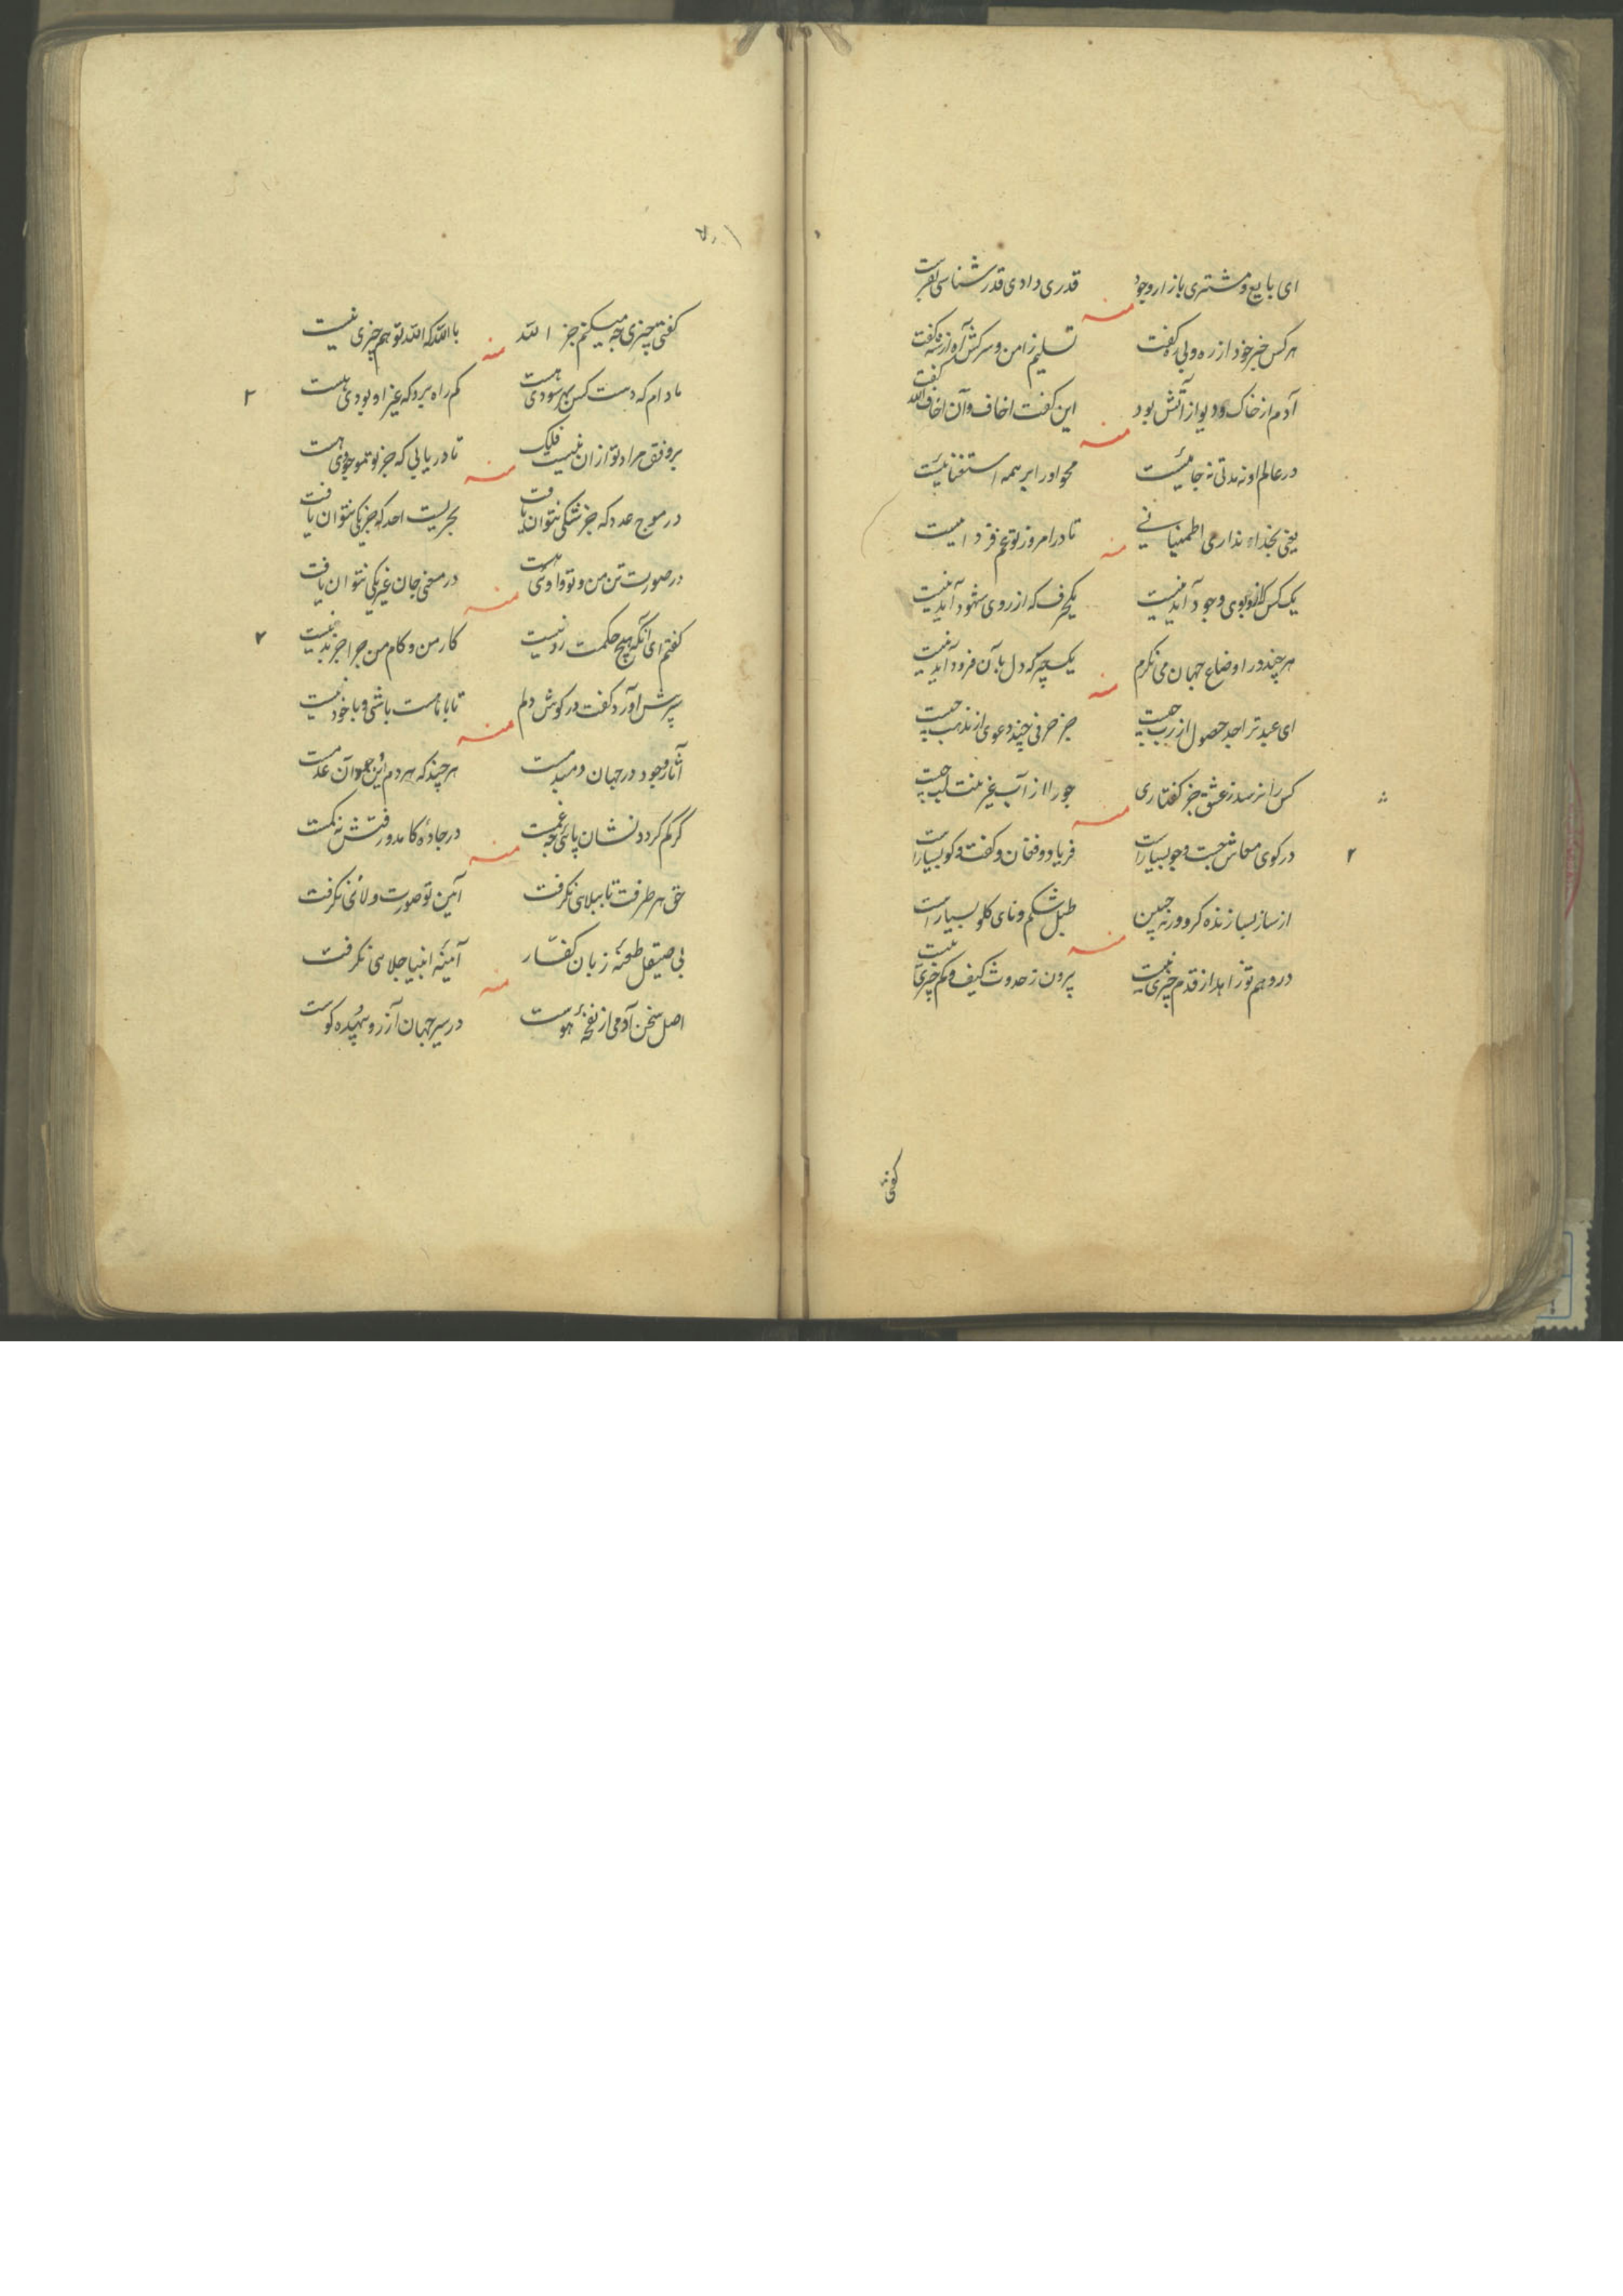 ای بایع و مشتری بازار وجود قدری دادی قدرشناسی بفرست
منه
هر کس خبر خود از ره و بی ره گفت تسلیم ز امن و سرکش آه از شه گفت
آدم از خاک و دیو از آتش بود این گفت اخاف و آن اخاف الله گفت
منه
در عالم او نه مدتی نه جائیست محو اور ابر همه استغنائیست
یعنی بخدا نداری اطمینانی تا در امروز تو غم فردائیست
منه
یک کس کزو بوی وجود آید نیست یکحرف که از روی شهود آید نیست
هر چند در اوضاع جهان می نگرم یکچیز که دل بآن فرود آید نیست
منه
ای عبد ترا جز حصول از رب چیست جز حرفی چند دعوی از مذهب چیست
کس را نرسد ز عشق جز گفتاری جو را از آب غیر منت لب چیست
منه
۲
در کوی معاش جست و جو بسیار است فریاد و فغان و گفت و گو بسیار است
از ساز بساز زنده گر ورنه چنین طبل شکم و نای گلو بسیار است
منه
در وهم تو زاهد از قدم چیزی نیست بیرون ز حدوث کیف و کم چیزی نیست
گفتی
گفتی چیزی چه میکنم جز الله بالله که الله تو هم چیزی نیست
منه
۲
مادام که دست کس بهر سودی هست کم راه برد که غیر او بودی هست
بر وفق مراد تو ازان نیست فلک تا دریابی که جز تو موجودی هست
منه
در موج عدد که جز شکی نتوان یافت بحریست احد که جز یکی نتوان یافت
در صورت تن من و تو و اوئی هست در معنی جان غیر یکی نتوان یافت
منه
۲
گفتم ای آنکه هیچ حکمت رد نیست کار من و کام من چرا جز بد نیست
پیرش آورد و گفت در گوش دلم تا با ما مست باشی و با خود نیست
منه
آثار وجود در جهان دمبدمست هر چند که هر دم این وجود آن عدمست
گر گم گردد نشان پائی چه غمست در جادۀ کامد و رفتش نه کمست
منه
حق هر طرفت تا ببلائی نگرفت آئین تو صورت ولائی نگرفت
بی صیقل طعنۀ زبان کفار آئینۀ انبیا جلائی نگرفت
منه
اصل سخن آدمی از نفخۀ هوست در سیر جهان آرزو بیهده گوست